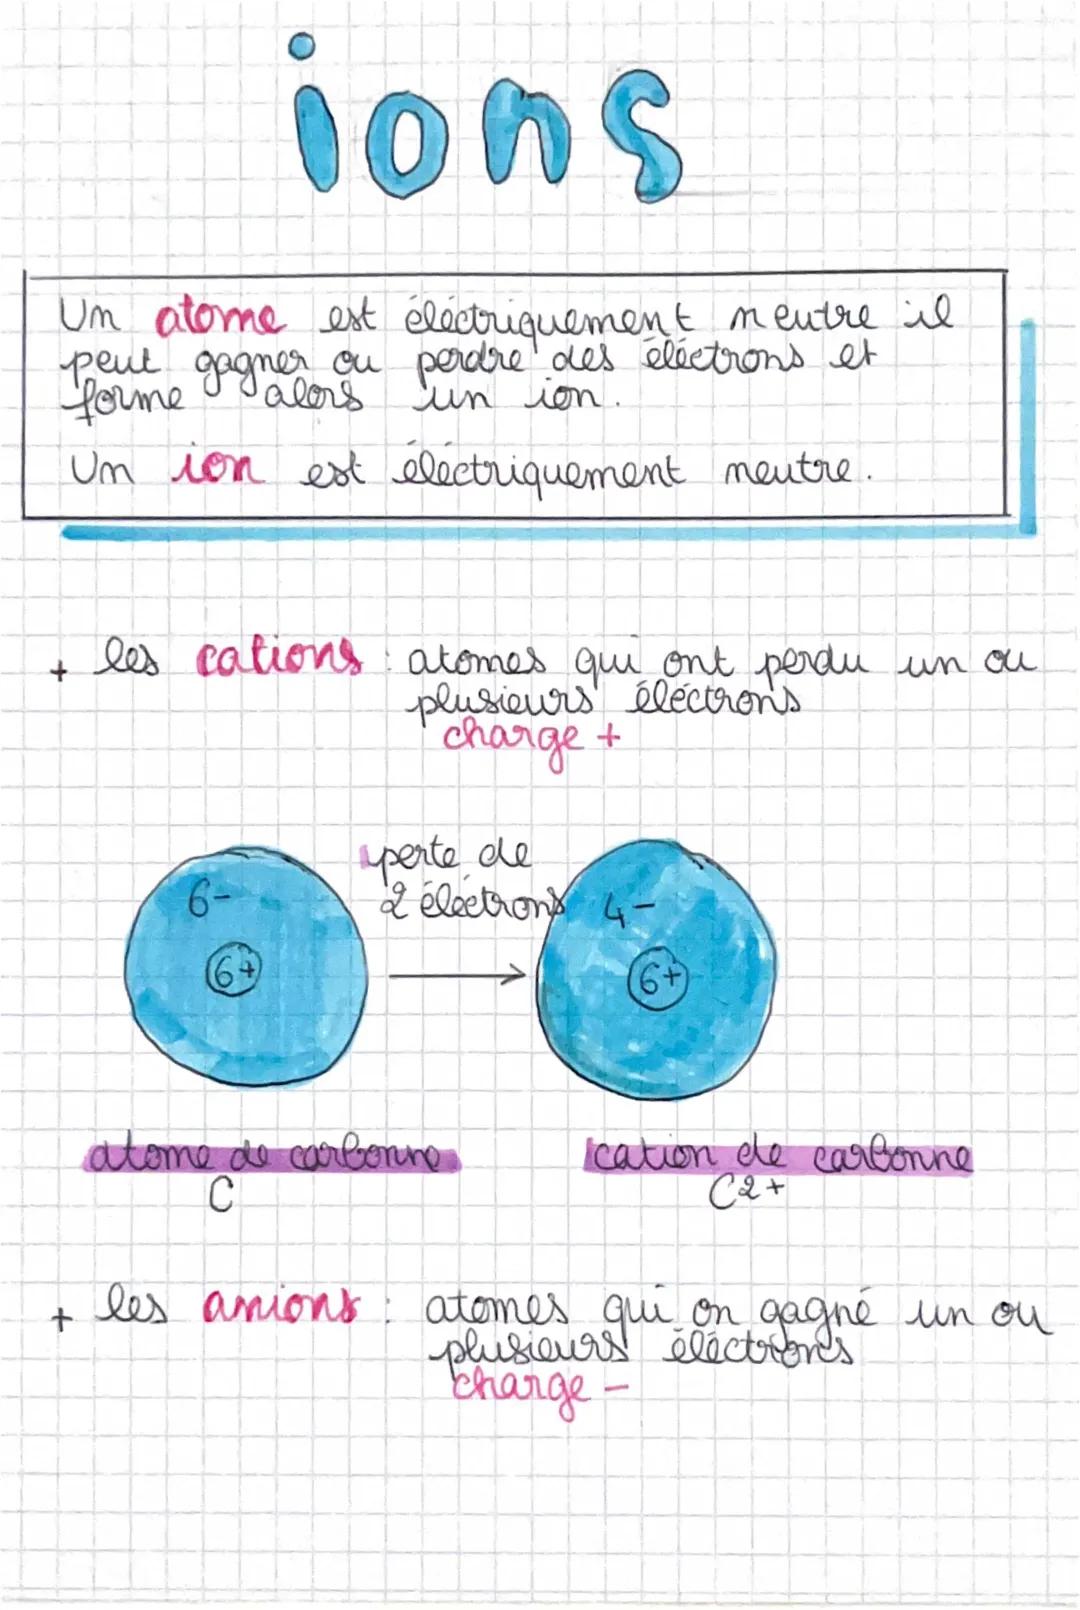 ions
Un atome est éléctriquement neutre il
peut gagner ou perdre des éléctrons et
forme alors un ion.
Un ion est éléctriquement neutre.
+ les cations : atomes qui ont perdu un ou
plusieurs éléctrons
charge +
perte de
2 éléctrons
6-
6+
4-
6+
atome de carbonne
C
cation de carbonne
C2+
+ les anions : atomes qui on gagné un ou
plusieurs éléctrons
charge -